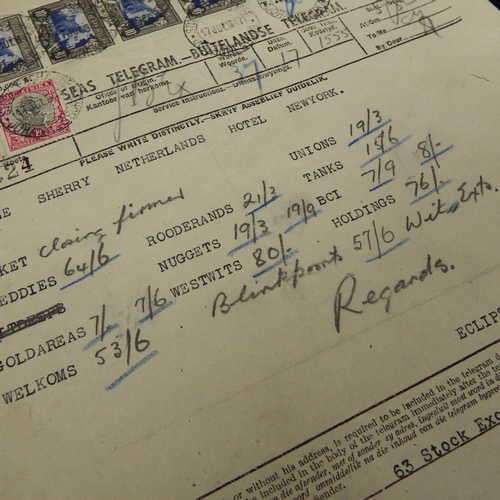 SEAS TELEGRAM.—BUITELANDSE TELEGRAM.
Office of Origin.
Kantoor van herkoms.
Words.
Woorde.
Date.
Datum.
37 17 1555
Service Instructions.—Diensaanwysings.
PLEASE WRITE DISTINCTLY.—SKRYF ASSEBLIEF DUIDELIK.
21
SHERRY NETHERLANDS HOTEL NEWYORK.
KET closing firmer
UNIONS 19/3
EDDIES 64/6 ROODERANDS 21/3 TANKS 19/6
NUGGETS 19/3 19/9 BCI 7/9 8/-
GOLDAREAS 7/- 7/6 WESTWITS 80/- HOLDINGS 76/-
WELKOMS 53/6 Blinkpoorts 57/6 Wits Exts.
Regards.
ECLIPS
or without his address, is required to be included in the telegram
included in the body of the telegram immediately after the
63 Stock Exc